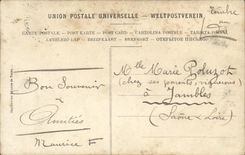 Timbre
UNION POSTALE UNIVERSELLE — WELTPOSTVEREIN
CARTE POSTALE — POST KARTE — POST CARD — CARTOLINA POSTALE — TARJETA POSTAL
LEVELEZŐ-LAP — BRIEFKAART — BREFKORT — ОТКРЫТОЕ ПИСЬМО
Bon Souvenir
&
Amitiés
Maurice F
Mlle Marie
(chez ses parents, vignerons)
à
Jambles
(Saône & Loire)